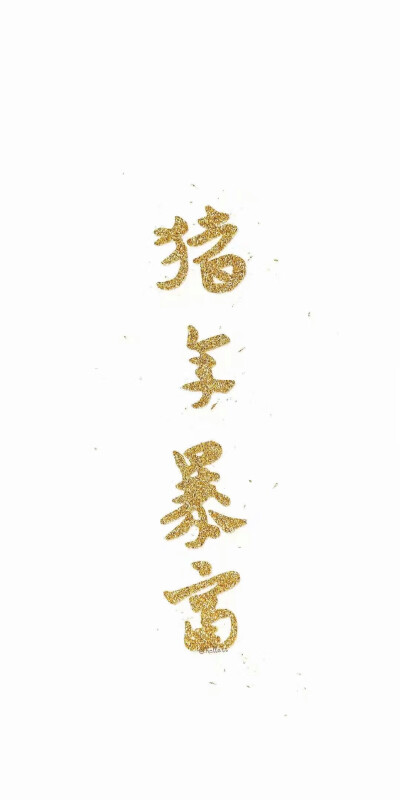 猪年暴富